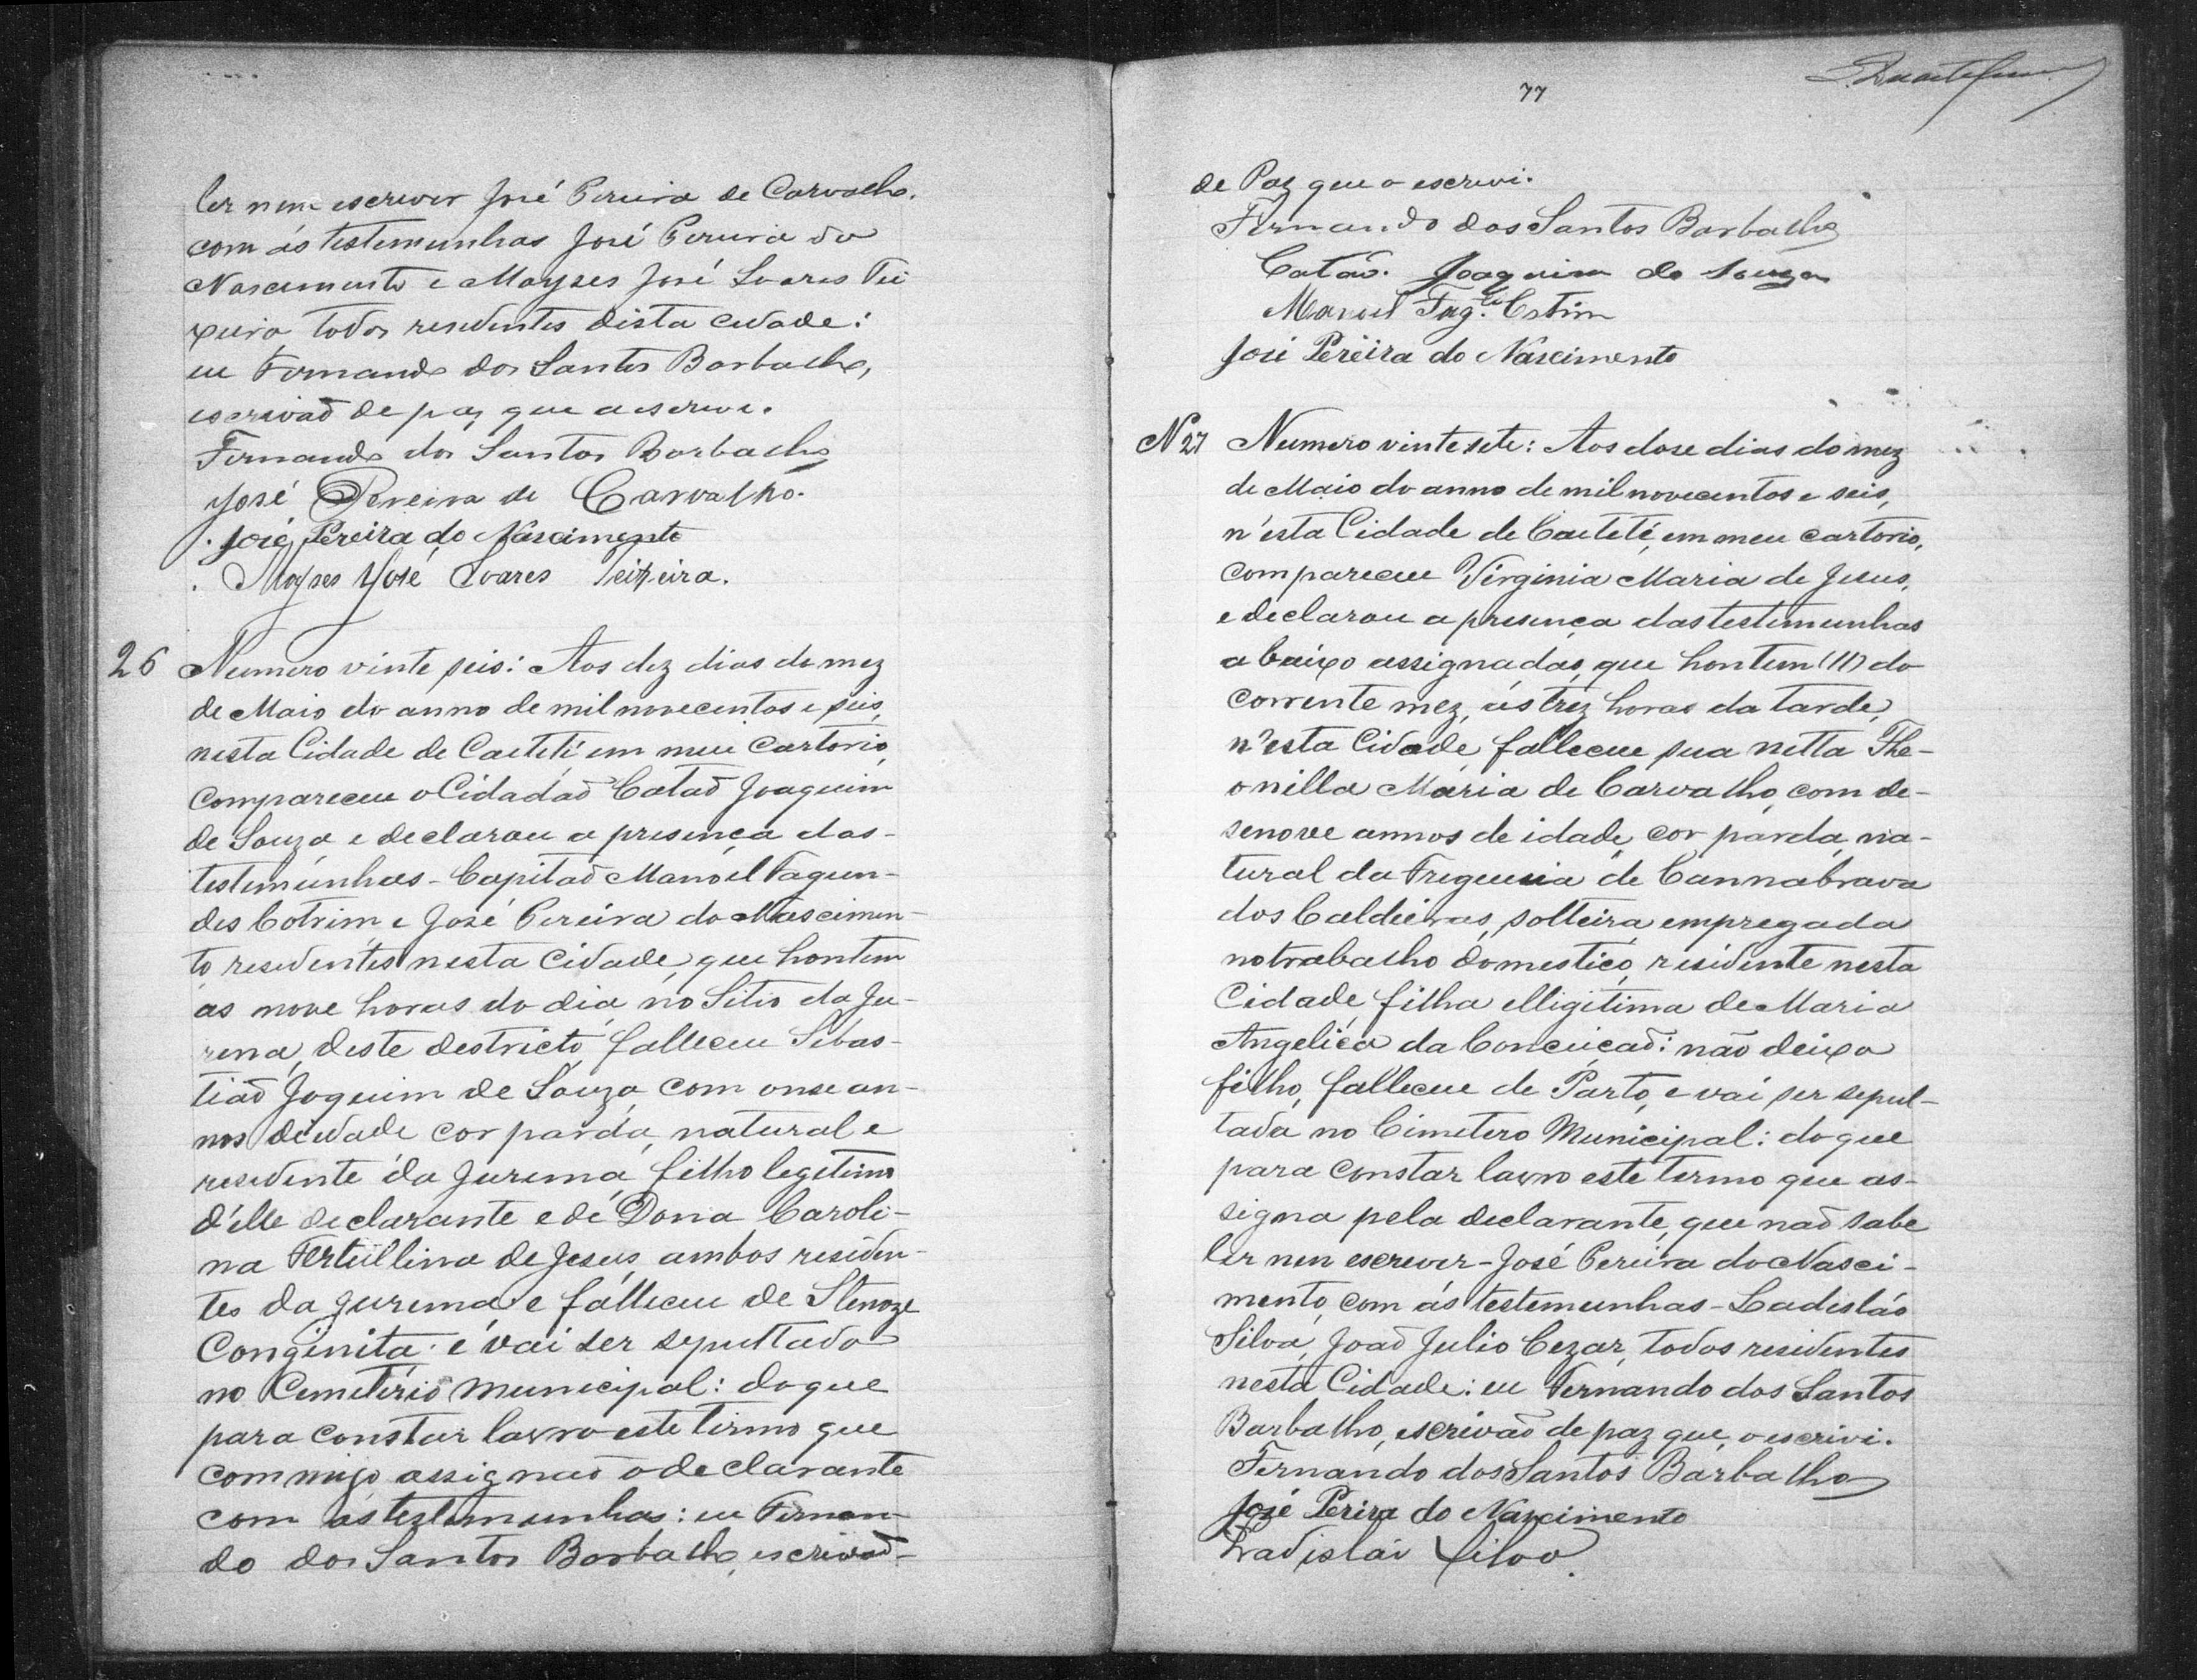 ler nem escrever José Pereira de Carvalho.
com ás testemunhas José Pereira do
Nascimento e Moyses José Soares Tei
xeira todos residentes dista cidade:
eu Fernando dos Santos Barbalho,
escrivaõ de paz que a escrevi.
Fernando dos Santos Barbalho
José Pereira de Carvalho.
José Pereira do Nascimento
Moyses José Soares Teixeira.
26 Numero vinte seis: Aos dez dias do mez
de Maio do anno de mil novecentos e seis,
nesta Cidade de Caeteté, em meu Cartorio,
Compareceu o Cidadaõ Cataõ Joaquim
de Souza e declarou a presença das-
testemunhas - Capitaõ Manoel Fagun-
des Cotrim e José Pereira do Nascimen-
to residentes nesta Cidade, que hontem
as nove horas do dia, no Sitio da Ju-
rema, deste destricto, falleceu Sebas-
tiaõ Joquim de Souza, com onse an-
nos de edade cor parda, natural e
residente da Jurema, filho legitimo
d'elle declarante e de Dona Caroli-
na Tertullina de Jesus, ambos residen-
tes da Jurema, e falleceu de Stenoze
Congenita: e vai ser sepultado
no Cemeterio Municipal: do que
para Constar lavro este termo que
commigo assignaõ o declarante
com as testemunhas: eu Fernan-
do dos Santos Barbalho, escrivaõ-
77
de Paz que o escrevi.
Fernando dos Santos Barbalho
Cataõ. Joaquim de Souza
Manoel Fag.des Cotrim
José Pereira do Nascimento
N 27 Numero vinte sete: Aos dose dias do mez
de Maio do anno de mil novecentos e seis,
n'esta Cidade de Caeteté, em meu cartorio,
compareceu Virginia Maria de Jesus,
e declarou a presença das testemunhas
abaixo assignadas, que hontem (11) do
corrente mez, ás trez horas da tarde,
n'esta Cidade, falleceu sua netta The-
onilla Maria de Carvalho, com de-
senove annos de idade, cor parda, na-
tural da Freguesia de Cannabrava
dos Caldeiras, solteira empregada
no trabalho domestico, residente nesta
Cidade, filha elligitima de Maria
Angelica da Conceiçaõ: não deixa
filho, falleceu de Parto, e vai ser sepul-
tada no Cimetero Municipal: do que
para constar lavro este termo que as-
signa pela declarante, que naõ sabe
ler nem escrever - José Pereira do Nasci-
mento, com ás testemunhas - Ladisláo
Silva, Joaõ Julio Cezar, todos residentes
nesta Cidade: eu Fernando dos Santos
Barbalho, escrivaõ de paz que, o escrivi.
Fernando dos Santos Barbalho
José Perira do Nascimento
Ladisláo Silva.